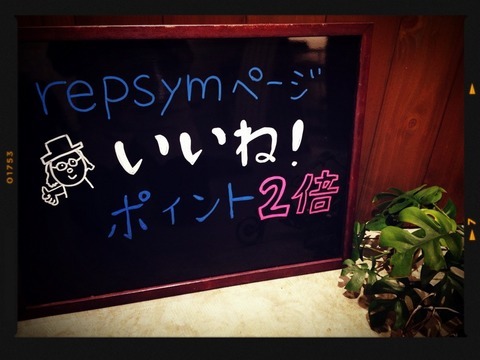 repsymページ
いいね!
ポイント2倍
01753
7